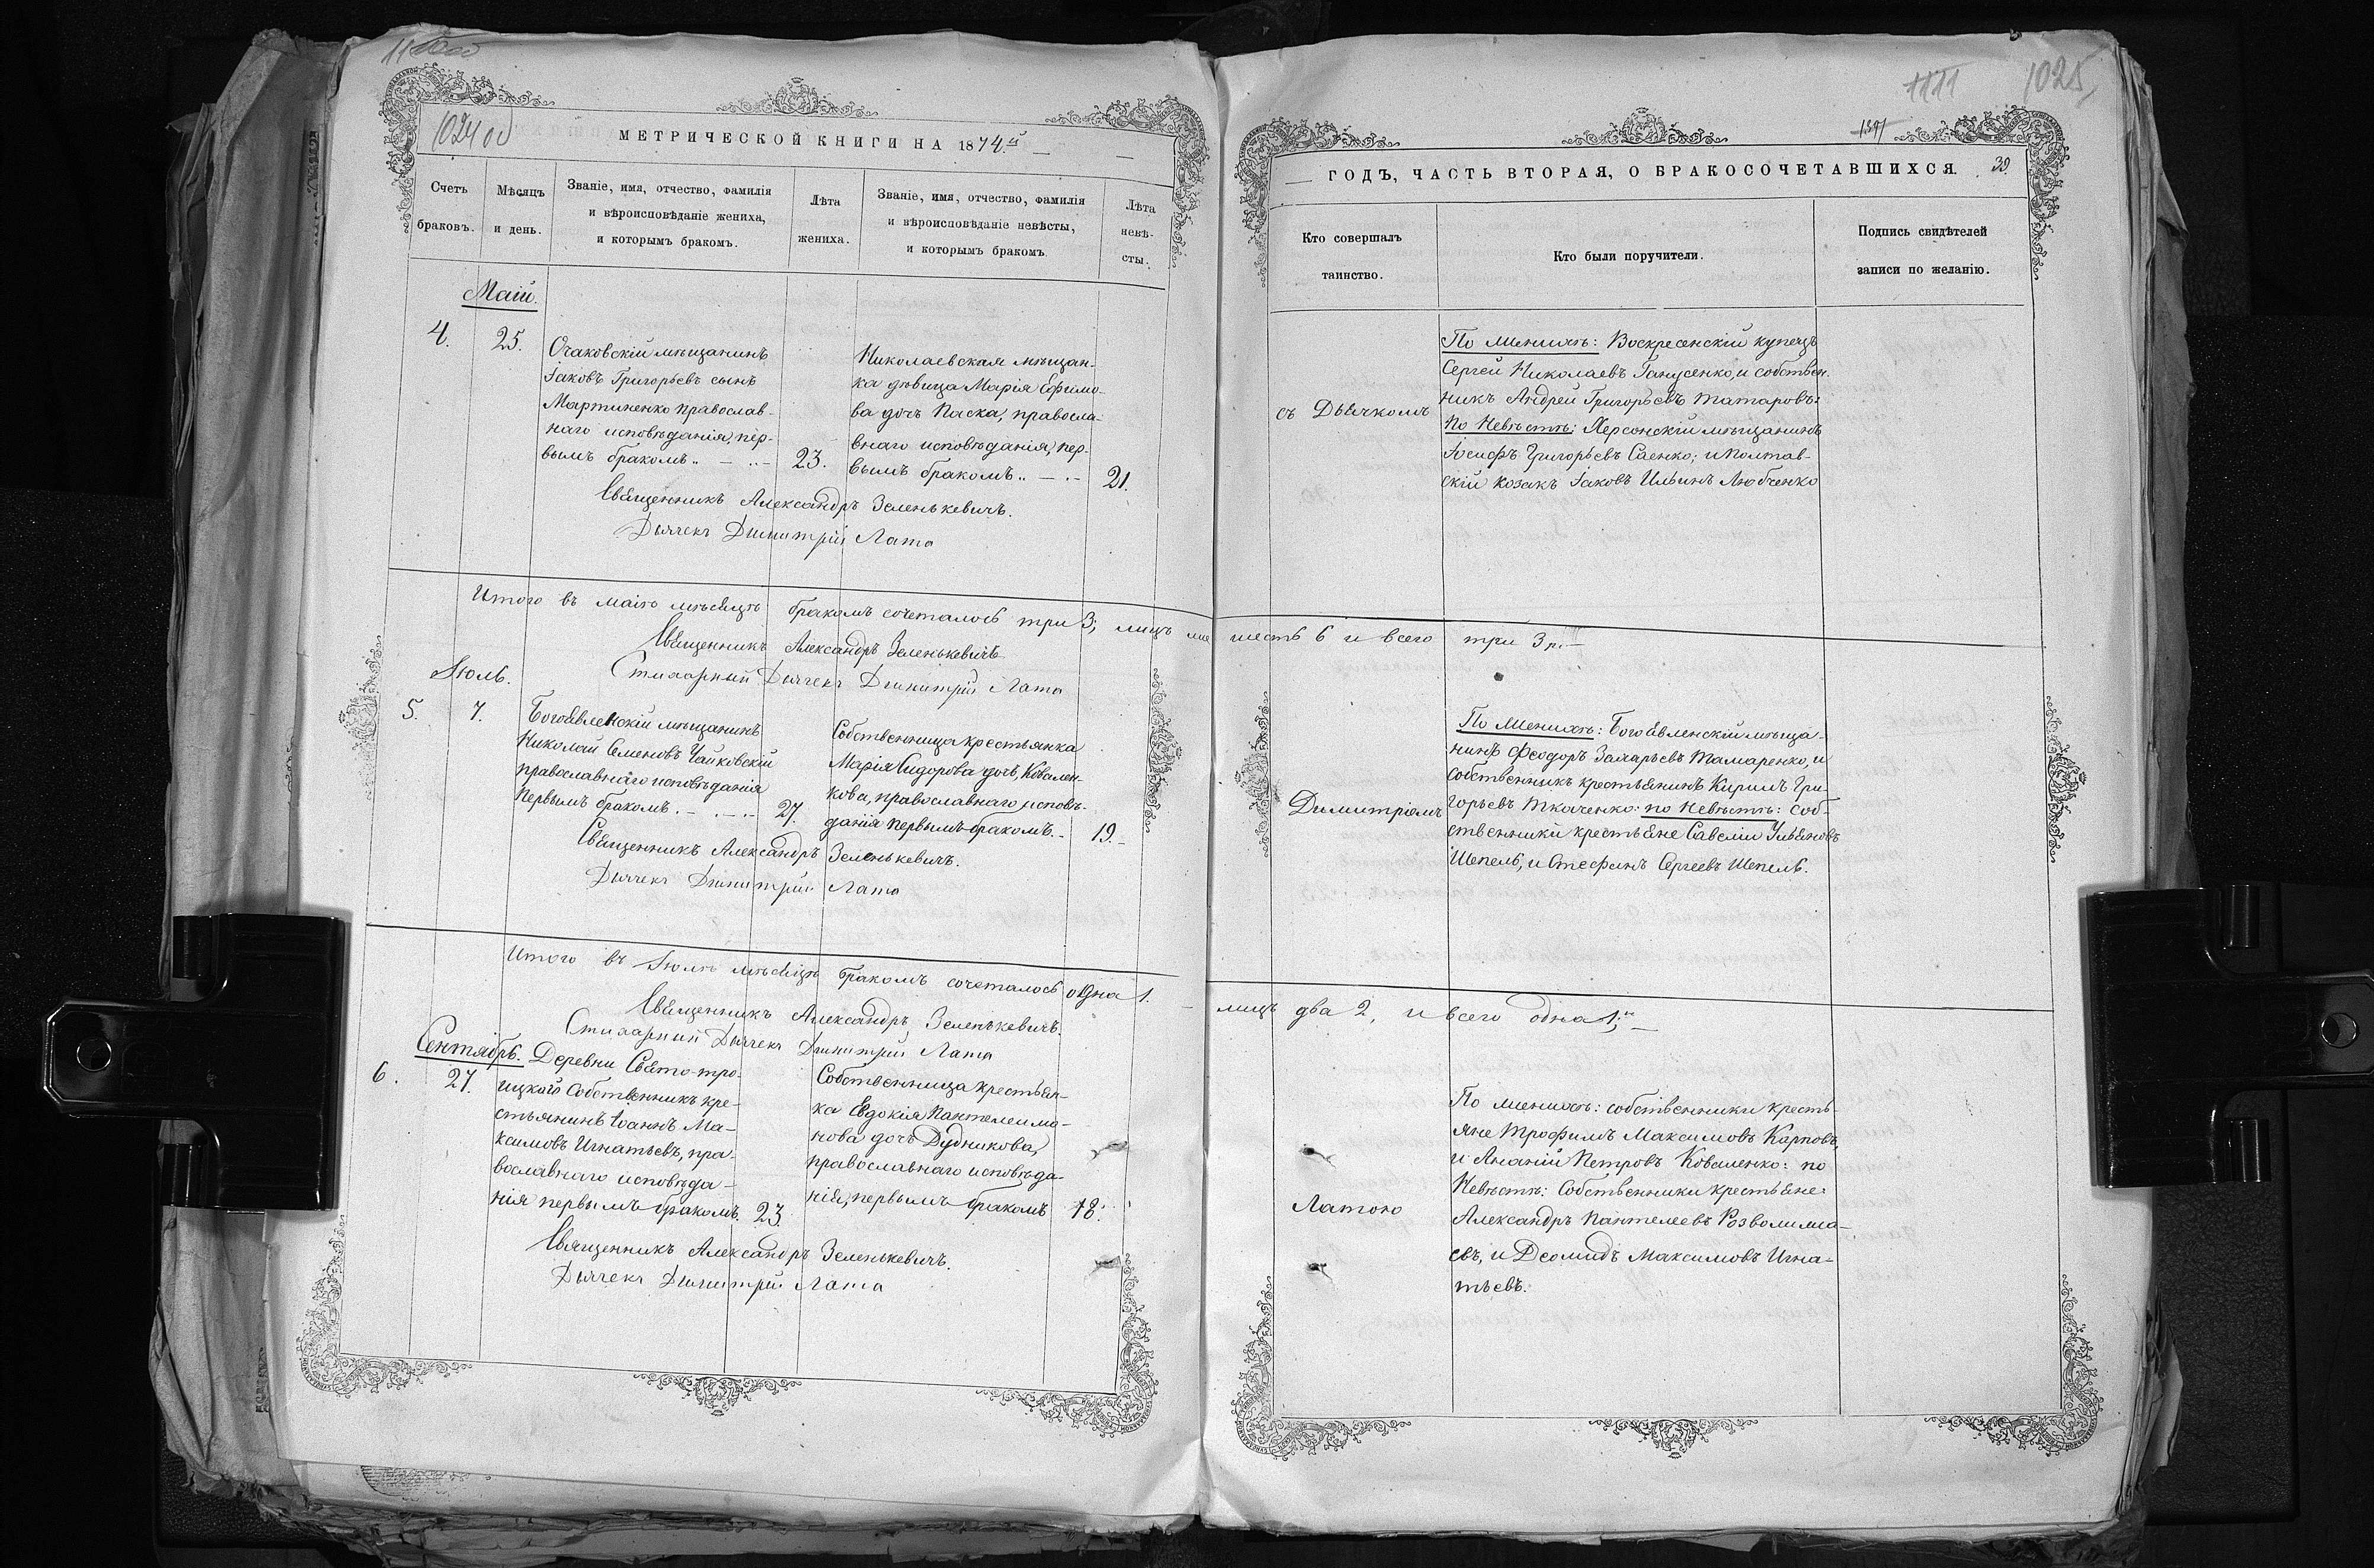 1024 об
МЕТРИЧЕСКОЙ КНИГИ НА 1874й
Счетъ браковъ.
Мѣсяцъ и день.
Званіе, имя, отчество, фамилія
и вѣроисповѣданіе жениха,
и которымъ бракомъ.
Лѣта
жениха.
Званіе, имя, отчество, фамилія
и вѣроисповѣданіе невѣсты,
и которымъ бракомъ.
Лѣта
невѣ-
сты.
Маій.
4.
25.
Очаковскій мѣщанинъ
Іаковъ Григорьевъ сынъ
Мартиненко православ-
наго исповѣданія, пер-
вымъ бракомъ
23.
Николаевская мѣщан-
ка дѣвица Марія Ефимо-
ва дочь Паска, правосла-
внаго исповѣданія, пер-
вымъ бракомъ
21.
Священникъ Александръ Зеленькевичъ.
Дьячекъ Димитрій Лата
Итого въ маіѣ мѣсяцѣ бракомъ сочеталось три 3; лицъ
Священникъ Александръ Зеленькевичъ
Стихарный Дьячекъ Димитрій Лата
Іюль.
5.
7.
Богоявленскій мѣщанинъ
Николай Семеновъ Чайковскій
православнаго исповѣданія
первымъ бракомъ.
27.
Собственница крестьянка
Марія Сидорова дочь, Ковален-
кова, православнаго исповѣ-
данія первымъ бракомъ.
19.
Священникъ Александръ Зеленькевичъ.
Дьячекъ Димитрій Лата
Итого въ Іюлѣ мѣсяцѣ бракомъ сочеталось одна 1.
Священникъ Александръ Зеленькевичъ.
Стихарный Дьячекъ Димитрій Лата
Сентябрь.
6.
27.
Деревни Свято-тро-
ицкой собственникъ кре-
стьянинъ Іоаннъ Ма-
ксимовъ Игнатьевъ, пра-
вославнаго исповѣда-
нія первымъ бракомъ.
23.
Собственница крестьян-
ка Евдокія Пантелеимо-
нова дочь Дудникова,
православнаго исповѣда-
нія, первымъ бракомъ
18.
Священникъ Александръ Зеленькевичъ.
Дьячекъ Димитрій Лата
1111
1025
1391
ГОДЪ, ЧАСТЬ ВТОРАЯ, О БРАКОСОЧЕТАВШИХСЯ.
39
Кто совершалъ
таинство.
Кто были поручители.
Подпись свидѣтелей
записи по желанію.
съ Дьячкомъ
По Женихѣ: Воскресенскій купецъ
Сергей Николаевъ Ганусенко, и собствен-
никъ Андрей Григорьевъ Татаровъ:
По Невѣстѣ: Херсонскій мѣщанинъ
Іосифъ Григорьевъ Саенко; и Полтав-
скій козакъ Іаковъ Ильинъ Любченко
шесть 6 и всего три 3.
Димитріемъ
По Женихѣ: Богоявленскій мѣща-
нинъ Феодоръ Захарьевъ Тамаренко, и
собственникъ крестьянинъ Кирилъ Гри-
горьевъ Ткаченко: по Невѣстѣ: соб-
ственники крестьяне Савелій Ульяновъ
Шепель, и Стефанъ Сергеевъ Шепель.
лицъ два 2, и всего одна 1.
Латою
По женихѣ: собственники кресть-
яне Трофимъ Максимовъ Карповъ,
и Ананій Петровъ Коваленко: по
Невѣстѣ: Собственники крестьяне:
Александръ Пантелеевъ
евъ, и Деомидъ Максимовъ Игна-
тьевъ.